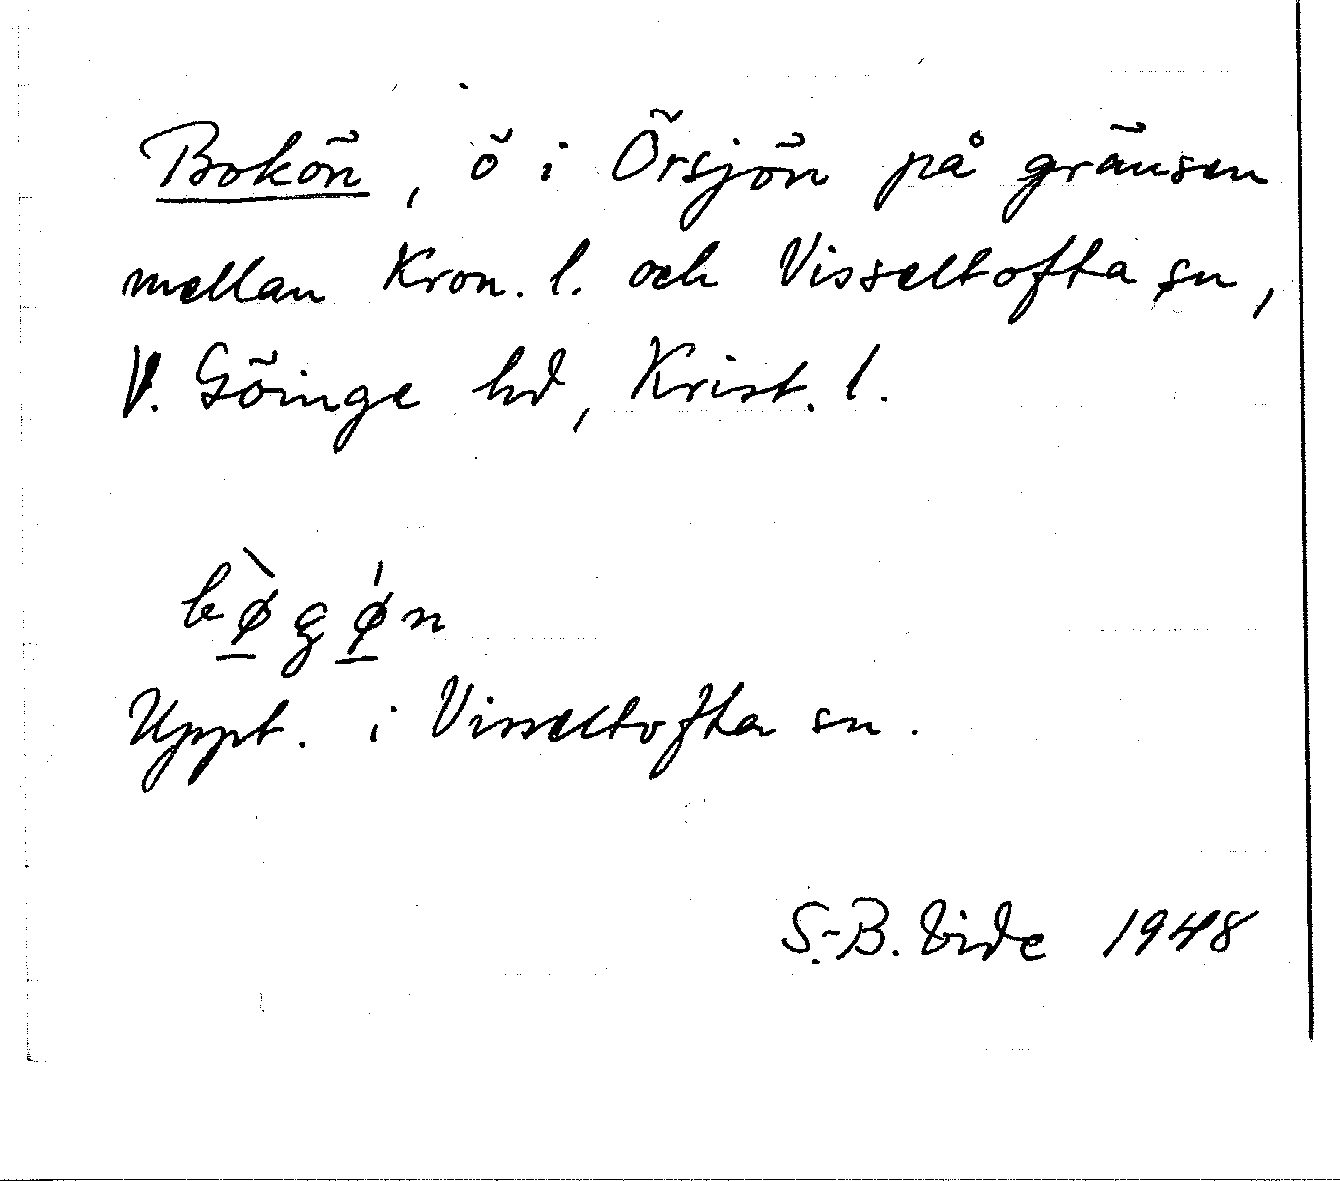 Bokön, ö i Örsjön på gränsen
mellan Kron. l. och Visseltofta sn,
V. Göinge hd, Krist. l.
bø̲̀gǿ̲n
Uppt. i Visseltofta sn.
S.-B. Vide 1948